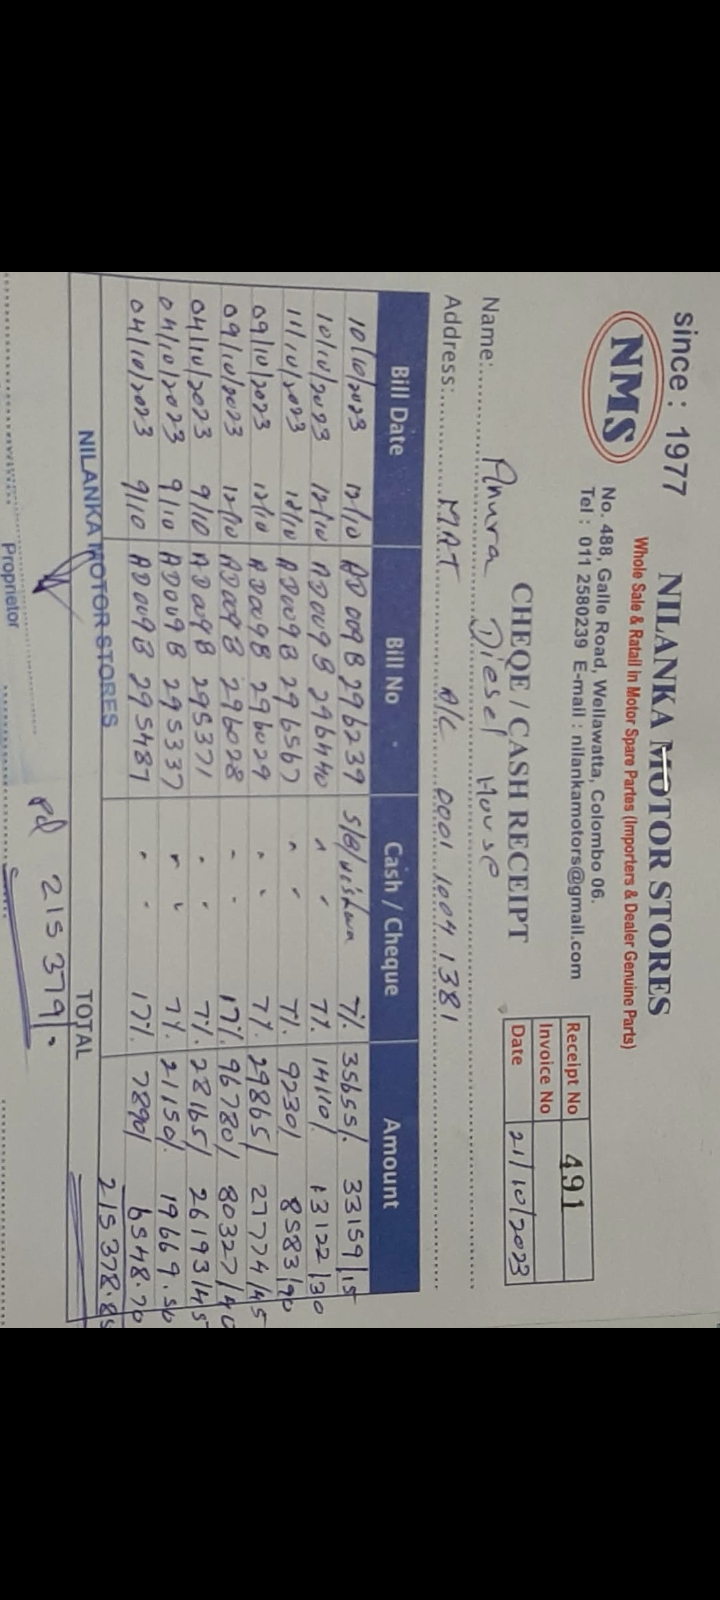 since : 1977
NMS
NILANKA MOTOR STORES
Whole Sale & Ratail in Motor Spare Partes (Importers & Dealer Genuine Parts)
No. 488, Galle Road, Wellawatta, Colombo 06.
Tel : 011 2580239 E-mail : nilankamotors@gmail.com
CHEQE / CASH RECEIPT
Receipt No 491
Invoice No
Date 21/10/2023
Name: Anura Diesel House
Address: MAT A/C 0001 1004 1381
Bill Date Bill No Cash / Cheque Amount
10/10/2023 12/10 AD009B296239 S/B/ 7%. 35655/. 33159/15
10/10/2023 12/10 AD009B 296440 " " 7% 14110/. 13122/30
11/10/2023 12/10 AD009B 296567 " " 7% 9230/ 8583/90
09/10/2023 12/10 AD009B 296029 " " 7% 29865/ 27774/45
09/10/2023 12/10 AD009B 296028 " " 17% 96780/ 80327/40
04/10/2023 9/10 AD009B 295371 " " 7% 28165/ 26193/45
04/10/2023 9/10 AD009B 295337 " " 7% 21150/. 19669.50
04/10/2023 9/10 AD009B 295487 " " 17%. 7890/ 6548.70
NILANKA MOTOR STORES TOTAL 215378.85
pd 215379/.
Proprietor